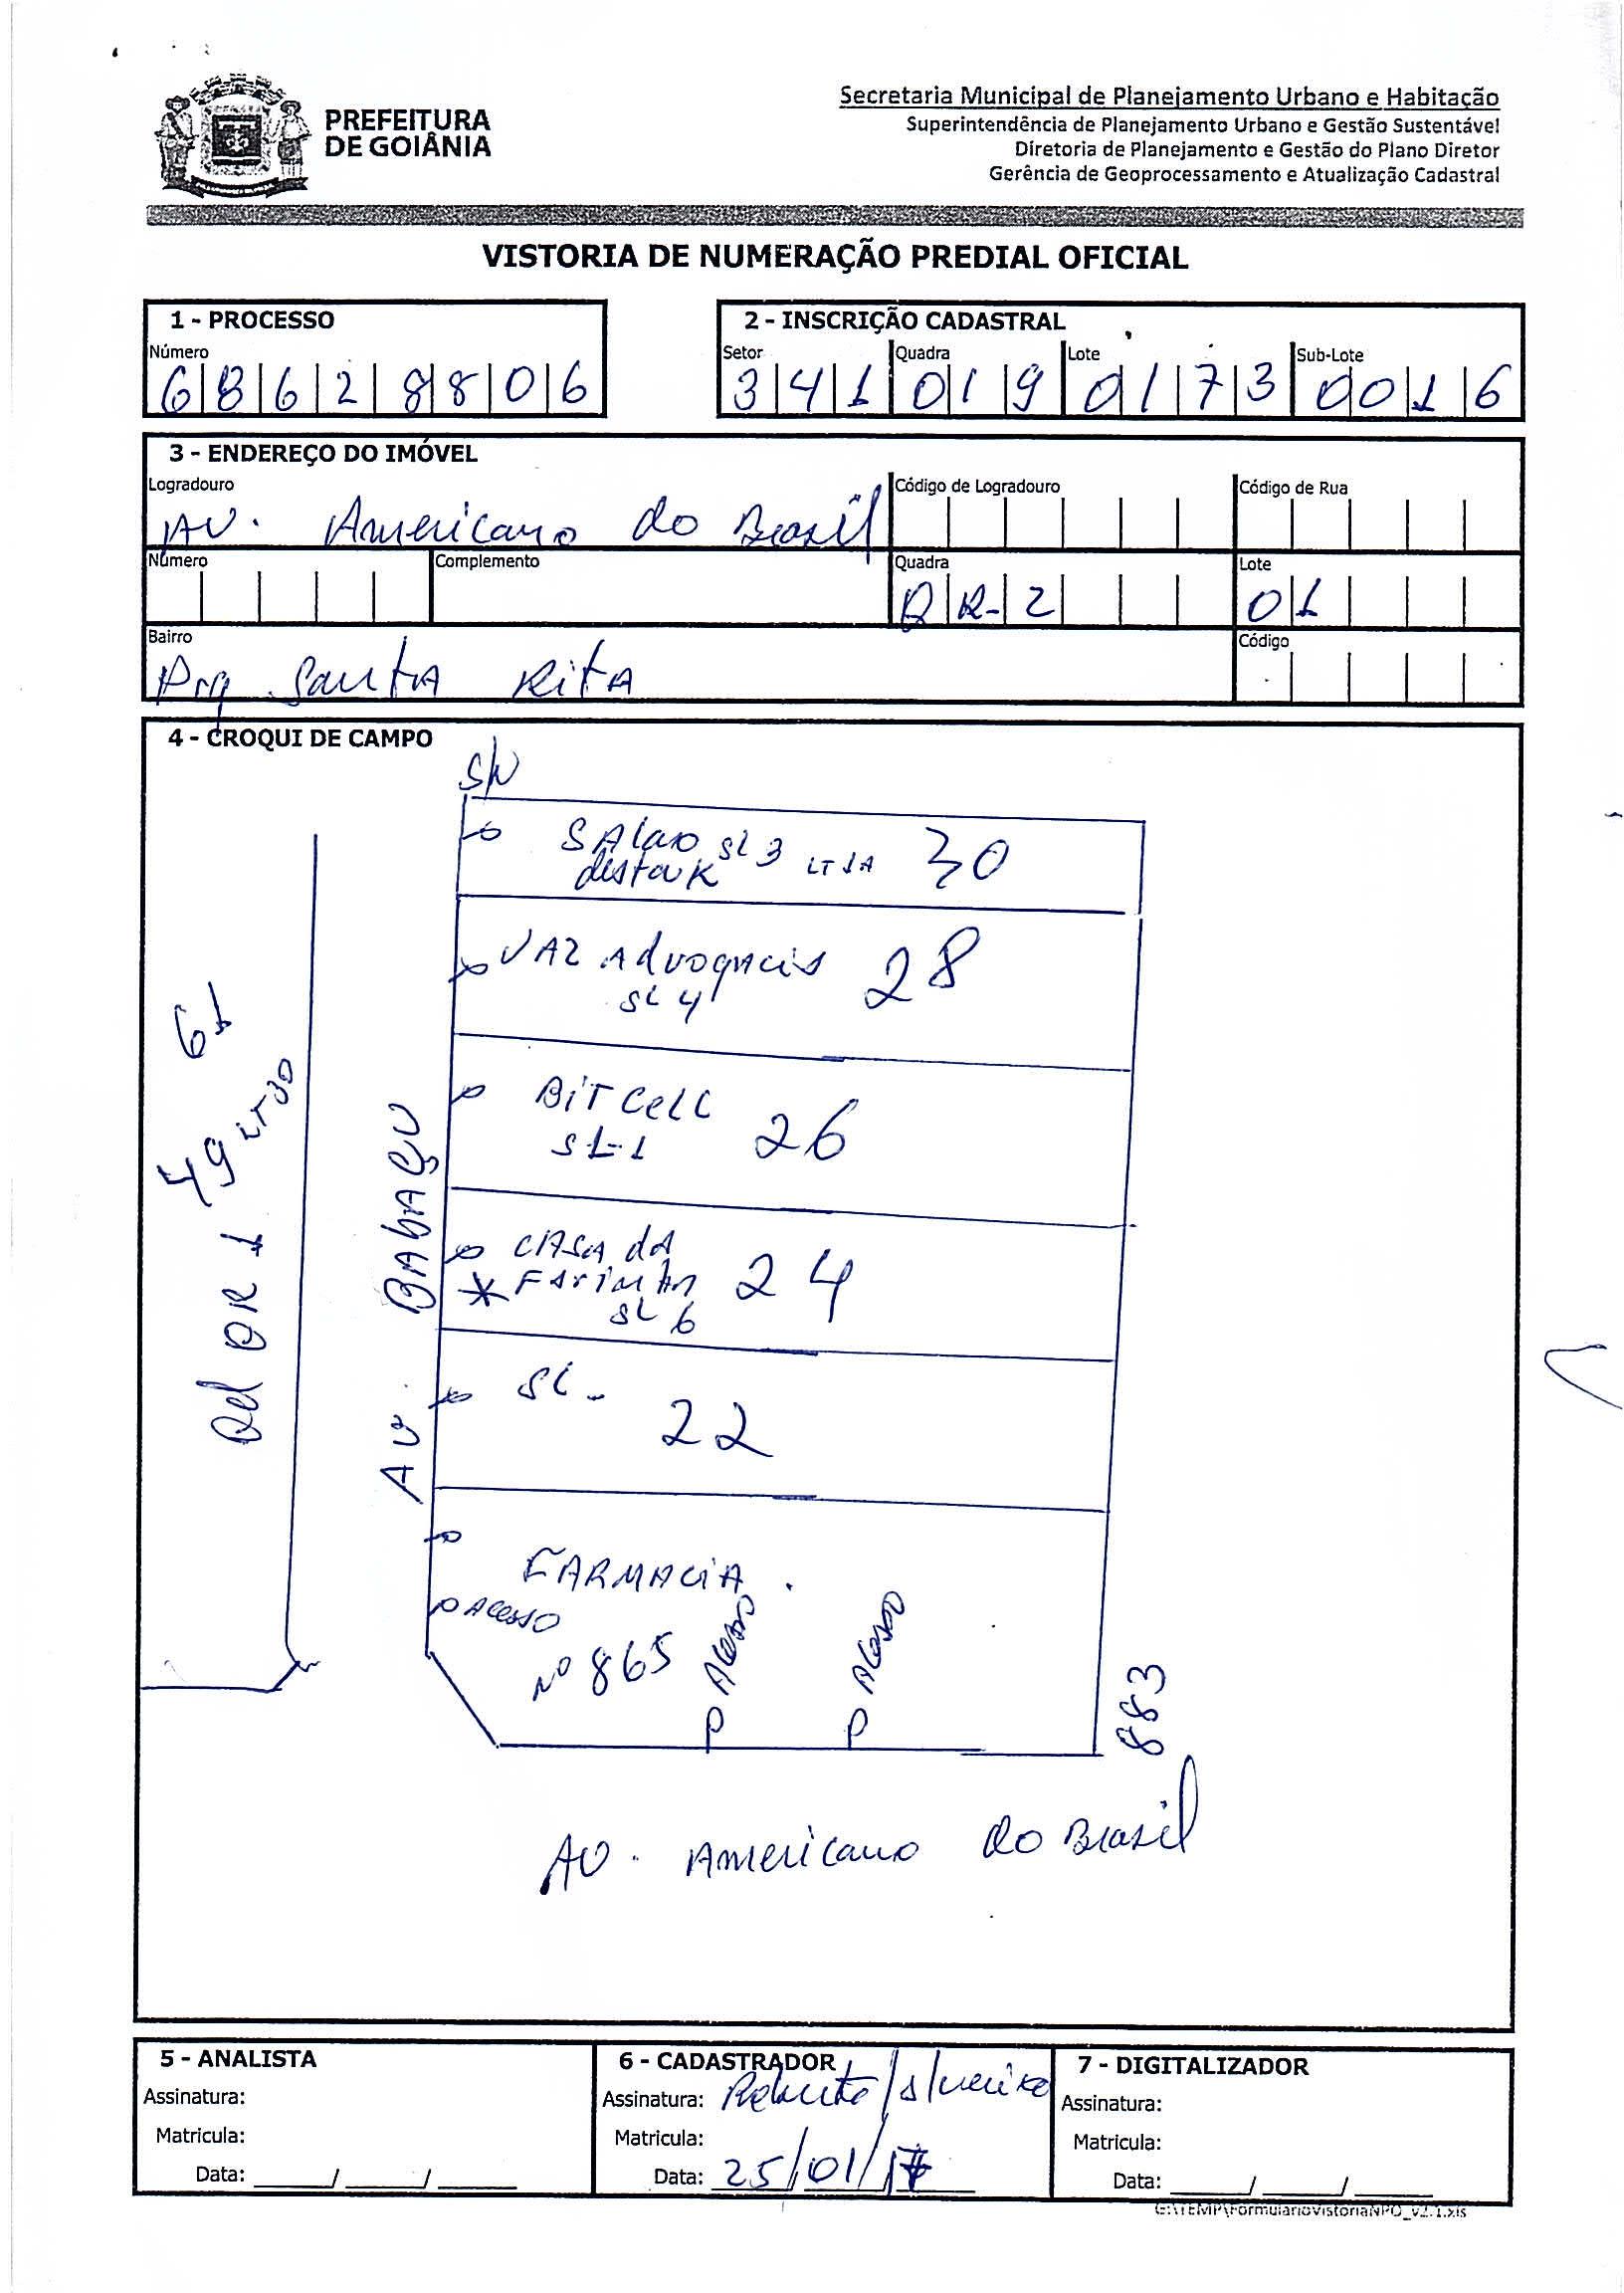 PREFEITURA
DE GOIÂNIA
Secretaria Municipal de Planejamento Urbano e Habitação
Superintendência de Planejamento Urbano e Gestão Sustentável
Diretoria de Planejamento e Gestão do Plano Diretor
Gerência de Geoprocessamento e Atualização Cadastral
VISTORIA DE NUMERAÇÃO PREDIAL OFICIAL
1 - PROCESSO
Número
68628806
2 - INSCRIÇÃO CADASTRAL
Setor Quadra Lote Sub-Lote
341 019 0173 0016
3 - ENDEREÇO DO IMÓVEL
Logradouro Código de Logradouro Código de Rua
AV. Americano do Brasil
Número Complemento Quadra Lote
QR-2 01
Bairro Código
Prq Santa Rita
4 - CROQUI DE CAMPO
S/N
SAlao SL 3 LT 1A 30
distak
VAZ Advogacis 28
SL 4
BiT Cell 26
SL-1
CASA dA
* FAriNhA 24
SL 6
SL - 22
FARMACiA.
Acesso
Nº 865
Acesso
Acesso
883
AV. BABAÇU
61
49 LT30
Qd QR 1
AV. Americano do Brasil
5 - ANALISTA
Assinatura:
Matricula:
Data: ____/____/____
6 - CADASTRADOR
Assinatura:
Matricula:
Data: 25/01/17
7 - DIGITALIZADOR
Assinatura:
Matricula:
Data: ____/____/____
G:\TEMP\FormularioVistoriaNPO_v2.1.xls